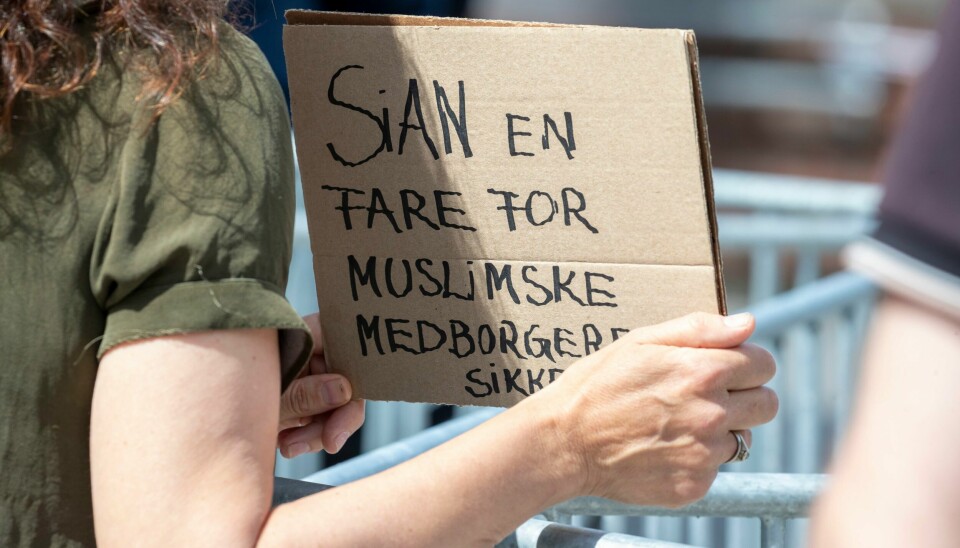 SiAN EN
FARE FOR
MUSLiMSKE
MEDBORGERE